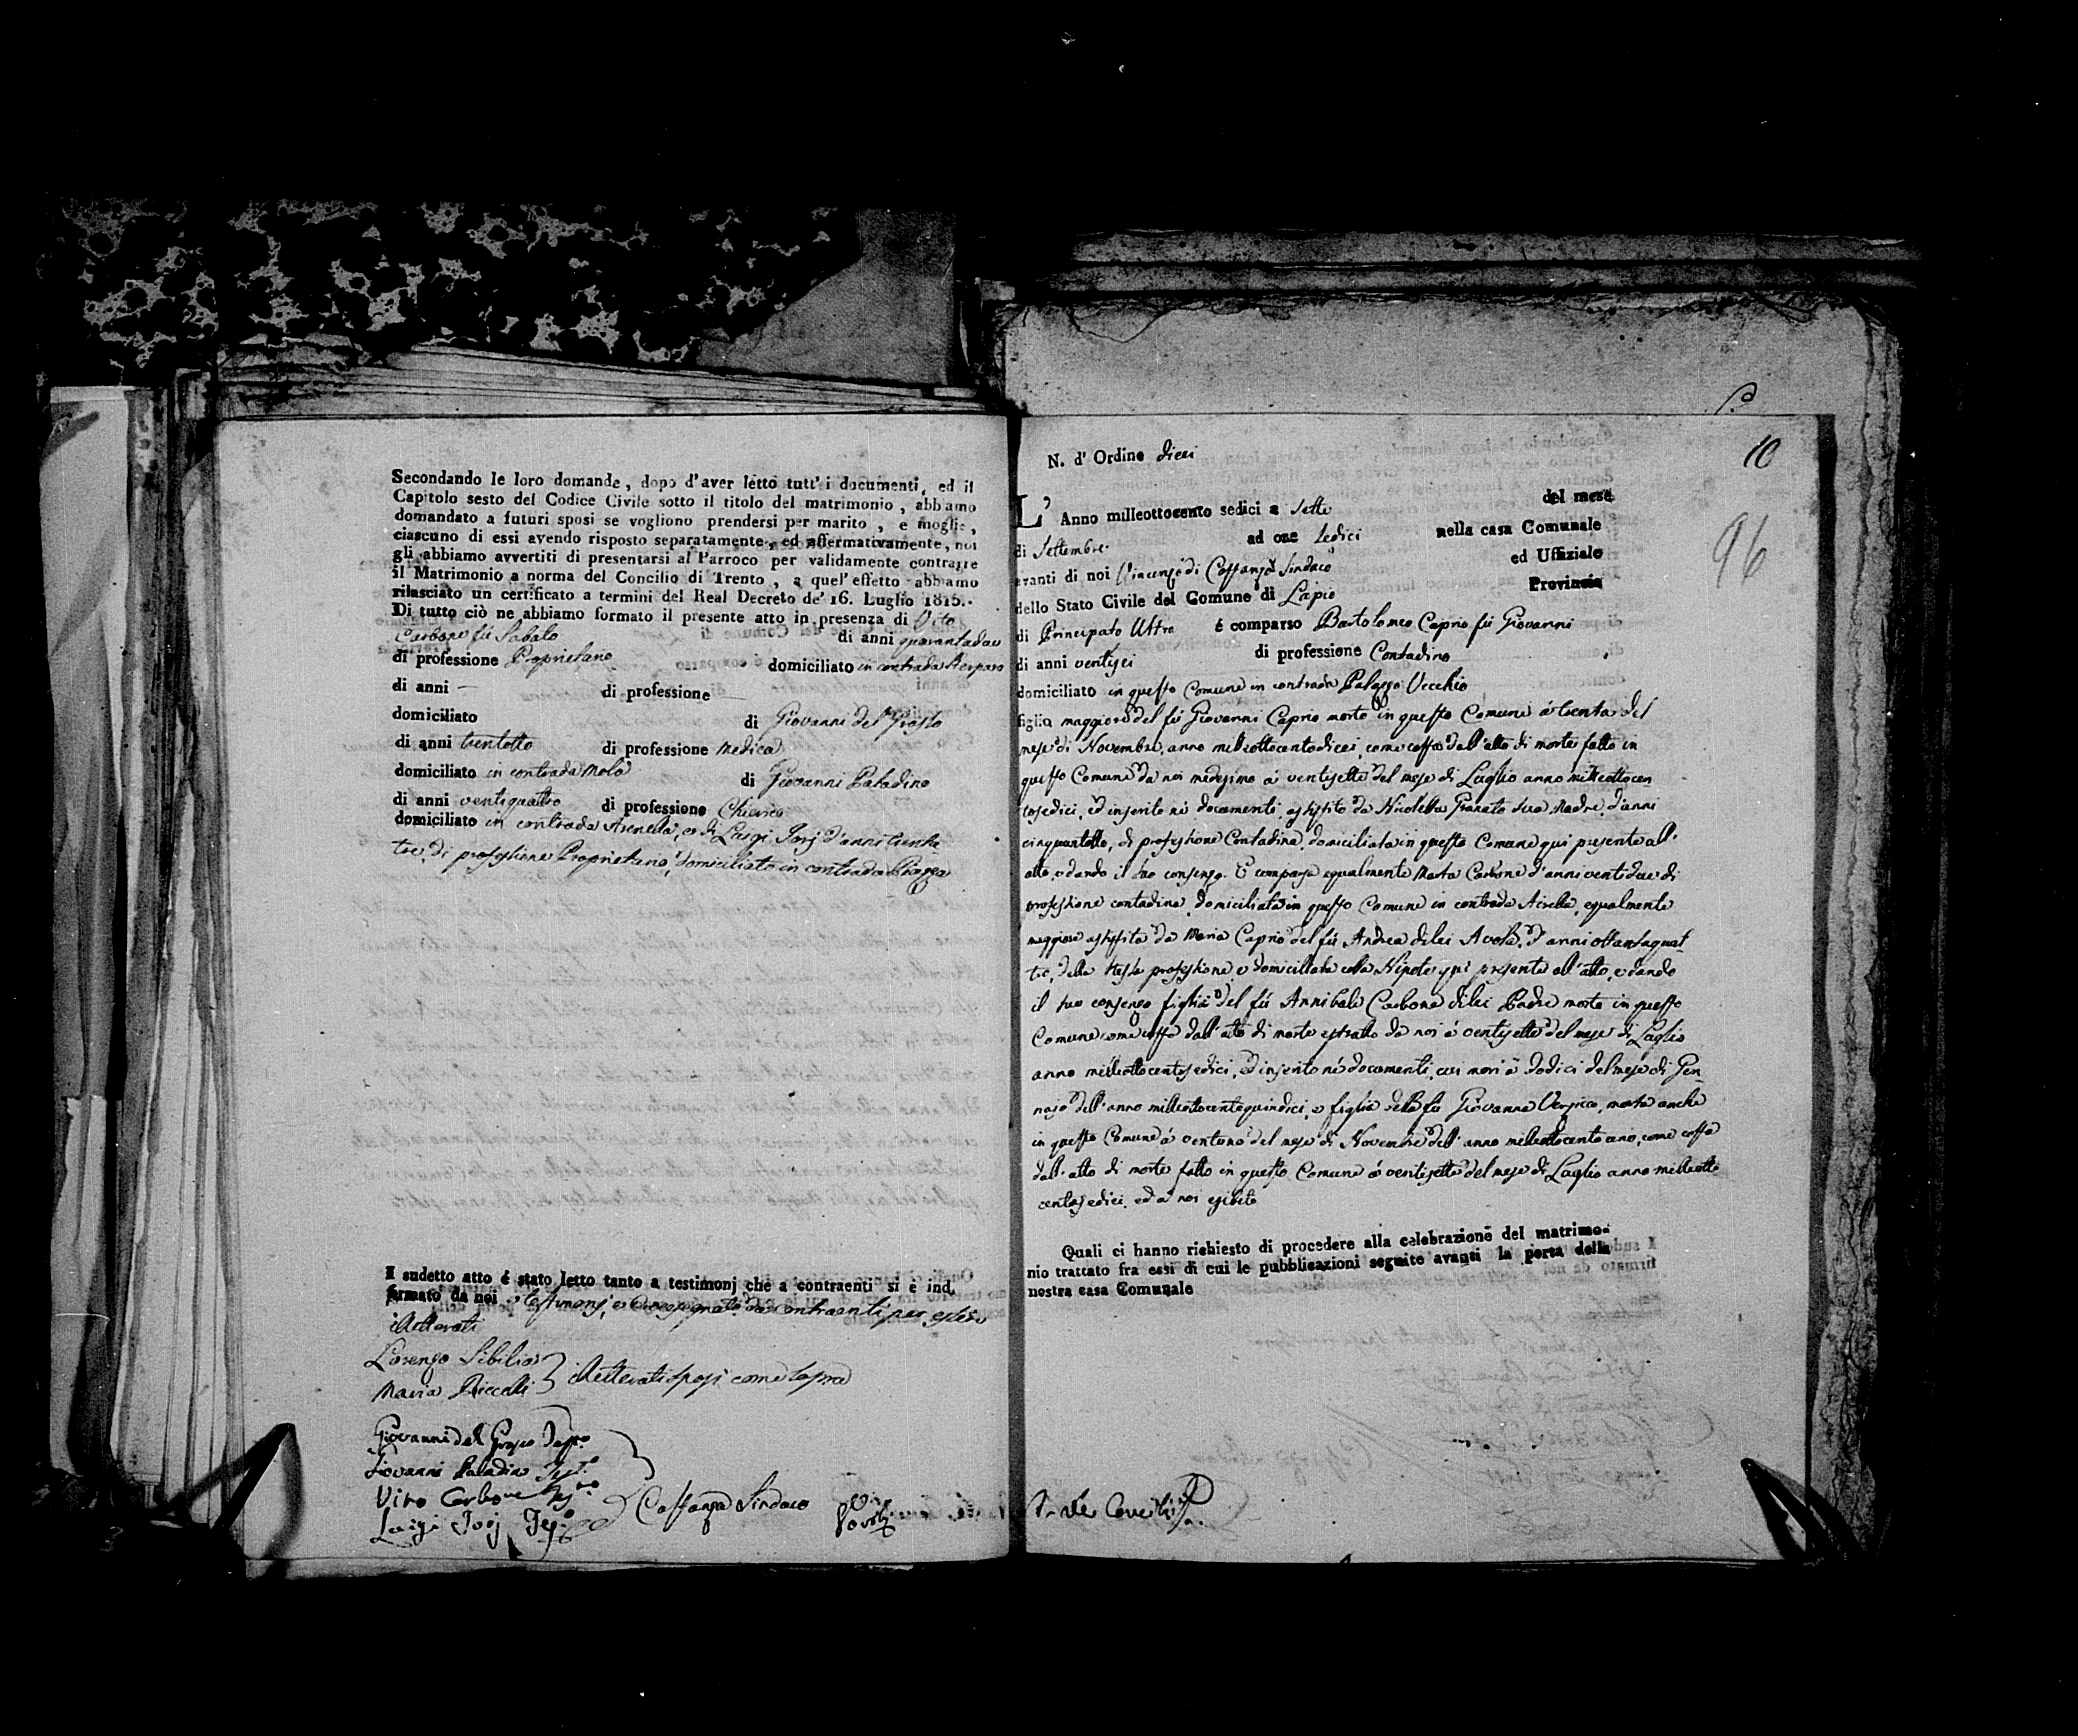 Secondando le loro domande, dopo d'aver letto tutt' i documenti, ed il
Capitolo sesto del Codice Civile sotto il titolo del matrimonio, abbiamo
domandato a futuri sposi se vogliono prendersi per marito, e moglie,
ciascuno di essi avendo risposto separatamente, ed affermativamente, noi
gli abbiamo avvertiti di presentarsi al Parroco per validamente contrarre
il Matrimonio a norma del Concilio di Trento, a quel' effetto abbiamo
rilasciato un certificato a termini del Real Decreto de' 16. Luglio 1815.
Di tutto ciò ne abbiamo formato il presente atto in presenza di Vito
Carbone fù Sabato di anni quarantadue
di professione Proprietario domiciliato in contrada
di anni — di professione —
domiciliato di Giovanni del Grosso
di anni trentotto di professione Medico
domiciliato in contrada Mola di Giovanni Paladino
di anni ventiquattro di professione Chierico
domiciliato in contrada Arenella, e di Luigi Jorj d'anni trenta
tre, di professione Proprietario, domiciliato in contrada Piazza
I sudetto atto é stato letto tanto a testimonj che a contraenti si é ind.
firmato da noi, e testimonj, e da contraenti per essere
illetterati
Lorenzo Sibilia
Maria Riccelli illetterati sposi come sopra
Giovanni del Grosso
Giovanni Paladino
Vito Carbone
Luigi Jorj
Costanza Sindaco
N. d' Ordine dieci
10
96
L' Anno milleottocento sedici a sette del mese
di Settembre ad ore sedici nella casa Comunale
avanti di noi Vincenzo di Costanzo Sindaco ed Uffiziale
dello Stato Civile del Comune di Lapio Provincia
di Principato Ultra é comparso Bartolomeo Caprio fù Giovanni
di anni ventisei di professione Contadino
domiciliato in questo Comune in contrada Palazzo Vecchio
figlio maggiore del fù Giovanni Caprio morto in questo Comune à trenta del
mese di Novembre, anno milleottocentodieci, come costa dall'atto di morte fatto in
questo Comune da noi medesimo à ventisette del mese di Luglio anno milleottocen
tosedici, ed inserito nè documenti, assistito da Nicoletta Granato sua Madre, d'anni
cinquantotto, di professione Contadina, domiciliata in questo Comune qui presente all'
atto, e dando il suo consenso. E comparsa egualmente Marta Carbone d'anni ventidue di
professione contadina, domiciliata in questo Comune in contrada egualmente
maggiore assistita da Maria Caprio del fù Andrea di lei Avola, d'anni ottantaquat
tro, della stessa professione, e domiciliata colla Nipote, qui presente all'atto, e dando
il suo consenso figlia del fù Annibale Carbone di lei Padre morto in questo
Comune come costa dall'atto di morte estratto da noi à ventisette del mese di Luglio
anno milleottocentosedici, ed inserito nè documenti, morì à dodici del mese di Gen
najo dell'anno milleottocentoquindici, e figlia della fù Giovanna morta anche
in questo Comune à ventuno del mese di Novembre dell'anno milleottocento uno, come costa
dall'atto di morte fatto in questo Comune à ventisette del mese di Luglio anno milleotto
centosedici, ed a noi esibito
Quali ci hanno richiesto di procedere alla celebrazione del matrimo-
nio trattato fra essi di cui le pubblicazioni seguite avanti la porta della
nostra casa Comunale